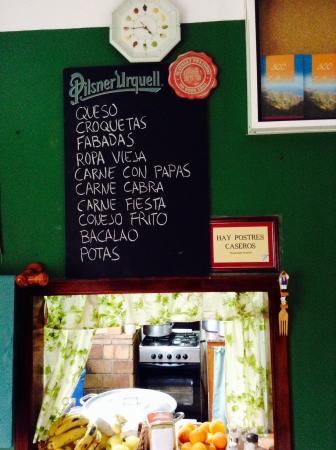 Pilsner Urquell
QUESO
CROQUETAS
FABADAS
ROPA VIEJA
CARNE CON PAPAS
CARNE CABRA
CARNE FIESTA
CONEJO FRITO
BACALAO
POTAS
HAY POSTRES
CASEROS